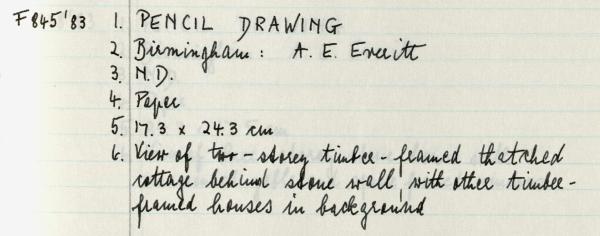 F845'83 1. PENCIL DRAWING
2. Birmingham: A. E. Everitt
3. N.D.
4. Paper
5. 17.3 x 24.3 cm
6. View of two-storey timber-framed thatched
cottage behind stone wall, with other timber-
framed houses in background